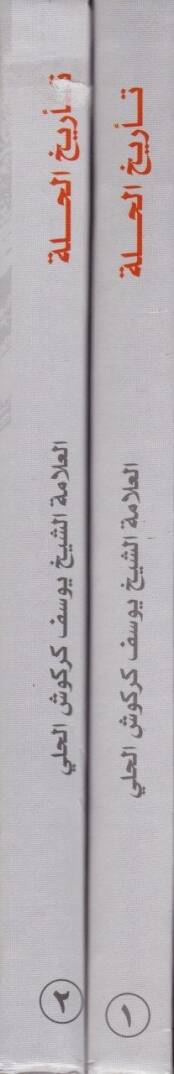 تأريخ الحلة
العلامة الشيخ يوسف كركوش الحلي
١
تأريخ الحلة
العلامة الشيخ يوسف كركوش الحلي
٢